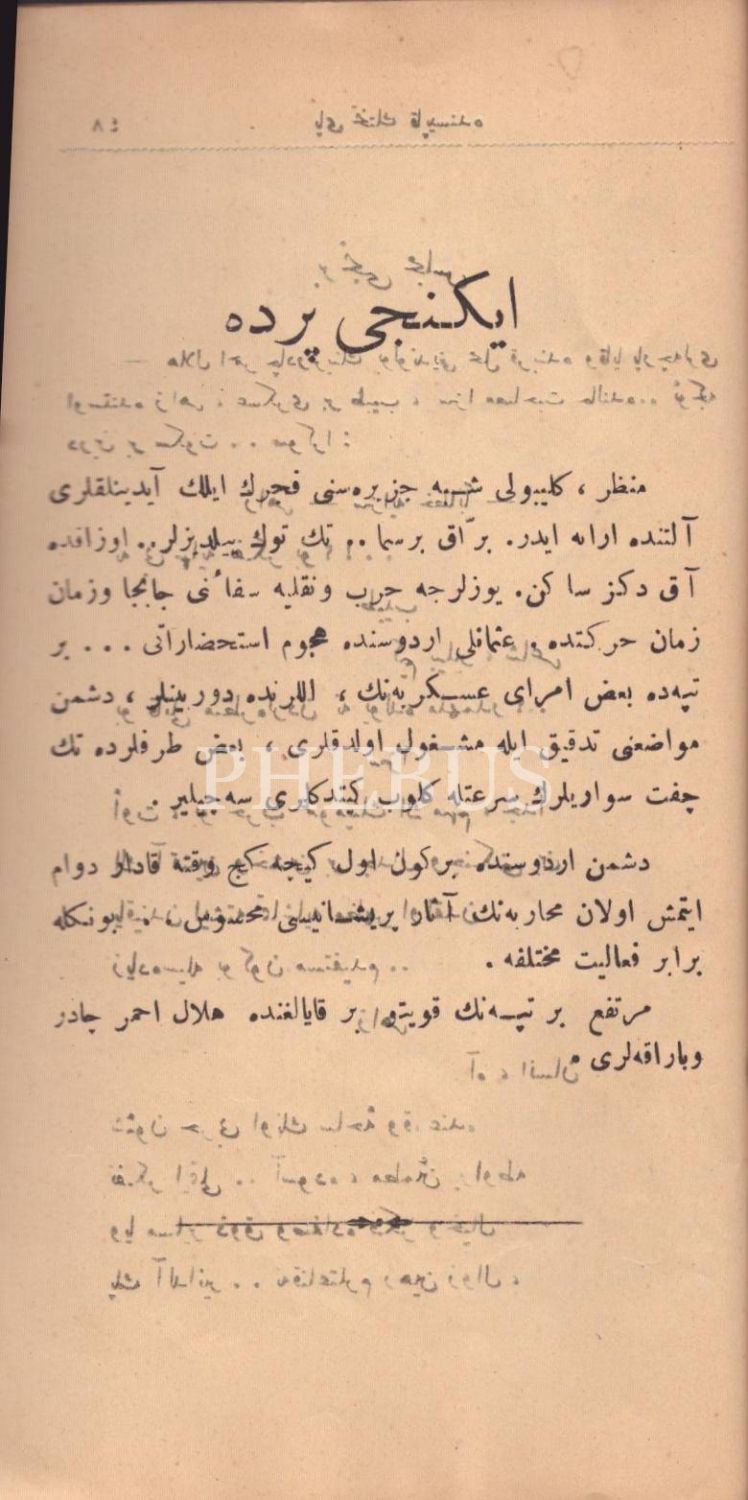 ایكنجی پرده
منظر ، كلیبولی شبه جزیره‌سنی فجرك ایلك آیدینلقلری
آلتنده ارائه ایدر. برّاق برسما.. تك توك ییلدیزلر.. اوزاقده
آق دكز ساكن. یوزلرجه حرب ونقلیه سفائنی جابجا وزمان
زمان حركتده. عثمانلی اردوسنده هجوم استحضاراتی ... بر
تپه‌ده بعض امرای عسكریه‌نك ، اللرنده دوربینلر ، دشمن
مواضعنی تدقیق ایله مشغول اولدقلری ، بعض طرفلرده تك
چفت سواریلرك سرعتله كلوب كیتدكلری سه‌چیلیر .
دشمن اردوسنده بركون اول كیجه كچ وقته قادار دوام
ایتمش اولان محاربه‌نك آثار پریشانیسی بونكله
برابر فعالیت مختلفه .
مرتفع بر تپه‌نك بر قایالغنده هلال احمر چادر
وباراقه‌لری .
PHEBUS